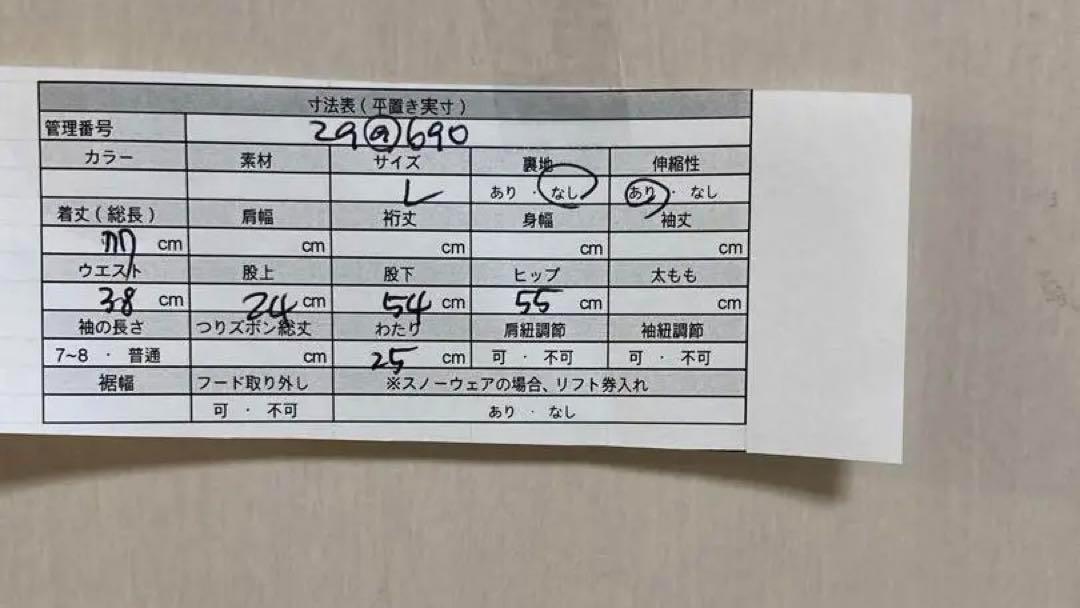 寸法表(平置き実寸)
管理番号 29ⓐ690
カラー 素材 サイズ 裏地 伸縮性
L あり ・ なし あり ・ なし
着丈(総長) 肩幅 裄丈 身幅 袖丈
77 cm cm cm cm cm
ウエスト 股上 股下 ヒップ 太もも
38 cm 24 cm 54 cm 55 cm cm
袖の長さ つりズボン総丈 わたり 肩紐調節 袖紐調節
7~8 ・ 普通 cm 25 cm 可 ・ 不可 可 ・ 不可
裾幅 フード取り外し ※スノーウェアの場合、リフト券入れ
可 ・ 不可 あり ・ なし